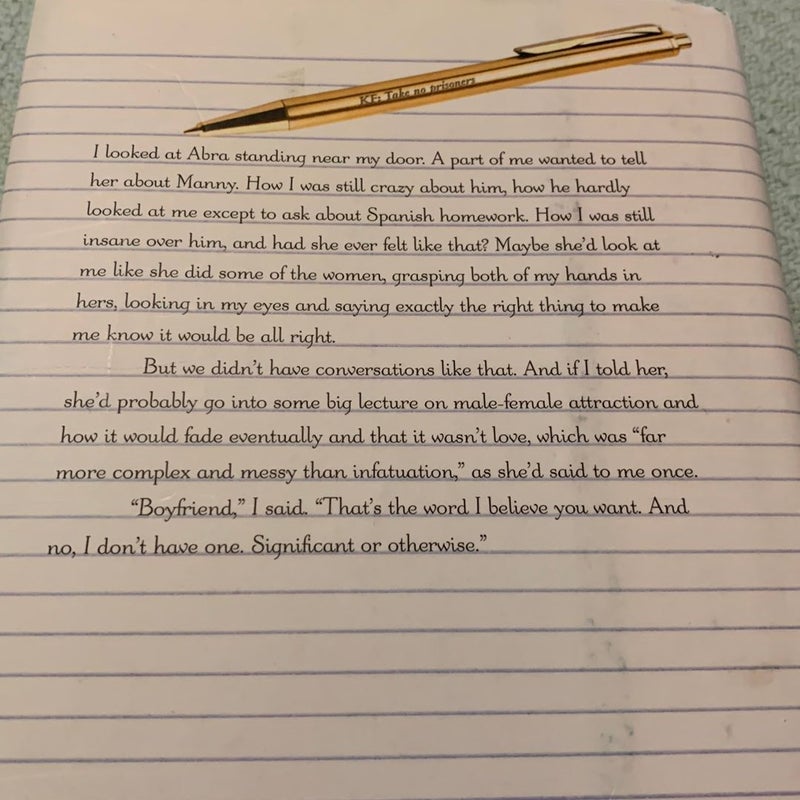 KF: Take no prisoners
I looked at Abra standing near my door. A part of me wanted to tell
her about Manny. How I was still crazy about him, how he hardly
looked at me except to ask about Spanish homework. How I was still
insane over him, and had she ever felt like that? Maybe she'd look at
me like she did some of the women, grasping both of my hands in
hers, looking in my eyes and saying exactly the right thing to make
me know it would be all right.
But we didn't have conversations like that. And if I told her,
she'd probably go into some big lecture on male-female attraction and
how it would fade eventually and that it wasn't love, which was "far
more complex and messy than infatuation," as she'd said to me once.
"Boyfriend," I said. "That's the word I believe you want. And
no, I don't have one. Significant or otherwise."